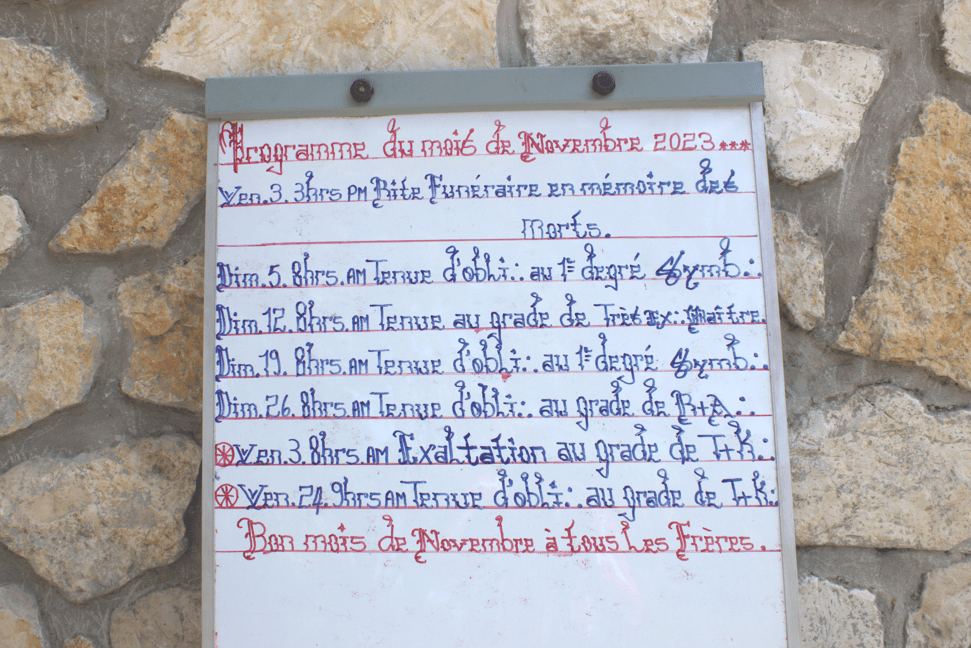 Programme du mois de Novembre 2023...
Ven.3.3hrs PM Rite Funéraire en mémoire des
Morts.
Dim.5.8hrs.AM Tenue d'obli∴ au 1er degré Symb∴
Dim.12.8hrs.AM Tenue au grade de Très Ex∴ Maître.
Dim.19.8hrs.AM Tenue d'obli∴ au 1er degré Symb∴
Dim.26.8hrs.AM Tenue d'obli∴ au grade de R+A∴
Ven.3.8hrs.AM Exaltation au grade de T+K∴
Ven.24.9hrs AM Tenue d'obli∴ au grade de T+K∴
Bon mois de Novembre à tous Les Frères.